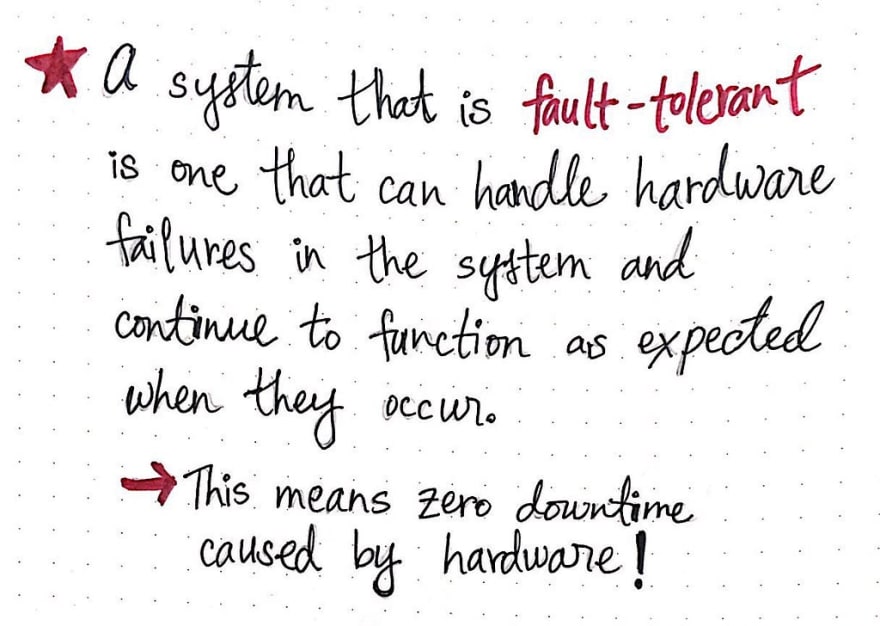 ★ A system that is fault-tolerant
is one that can handle hardware
failures in the system and
continue to function as expected
when they occur.
→ This means zero downtime
caused by hardware!